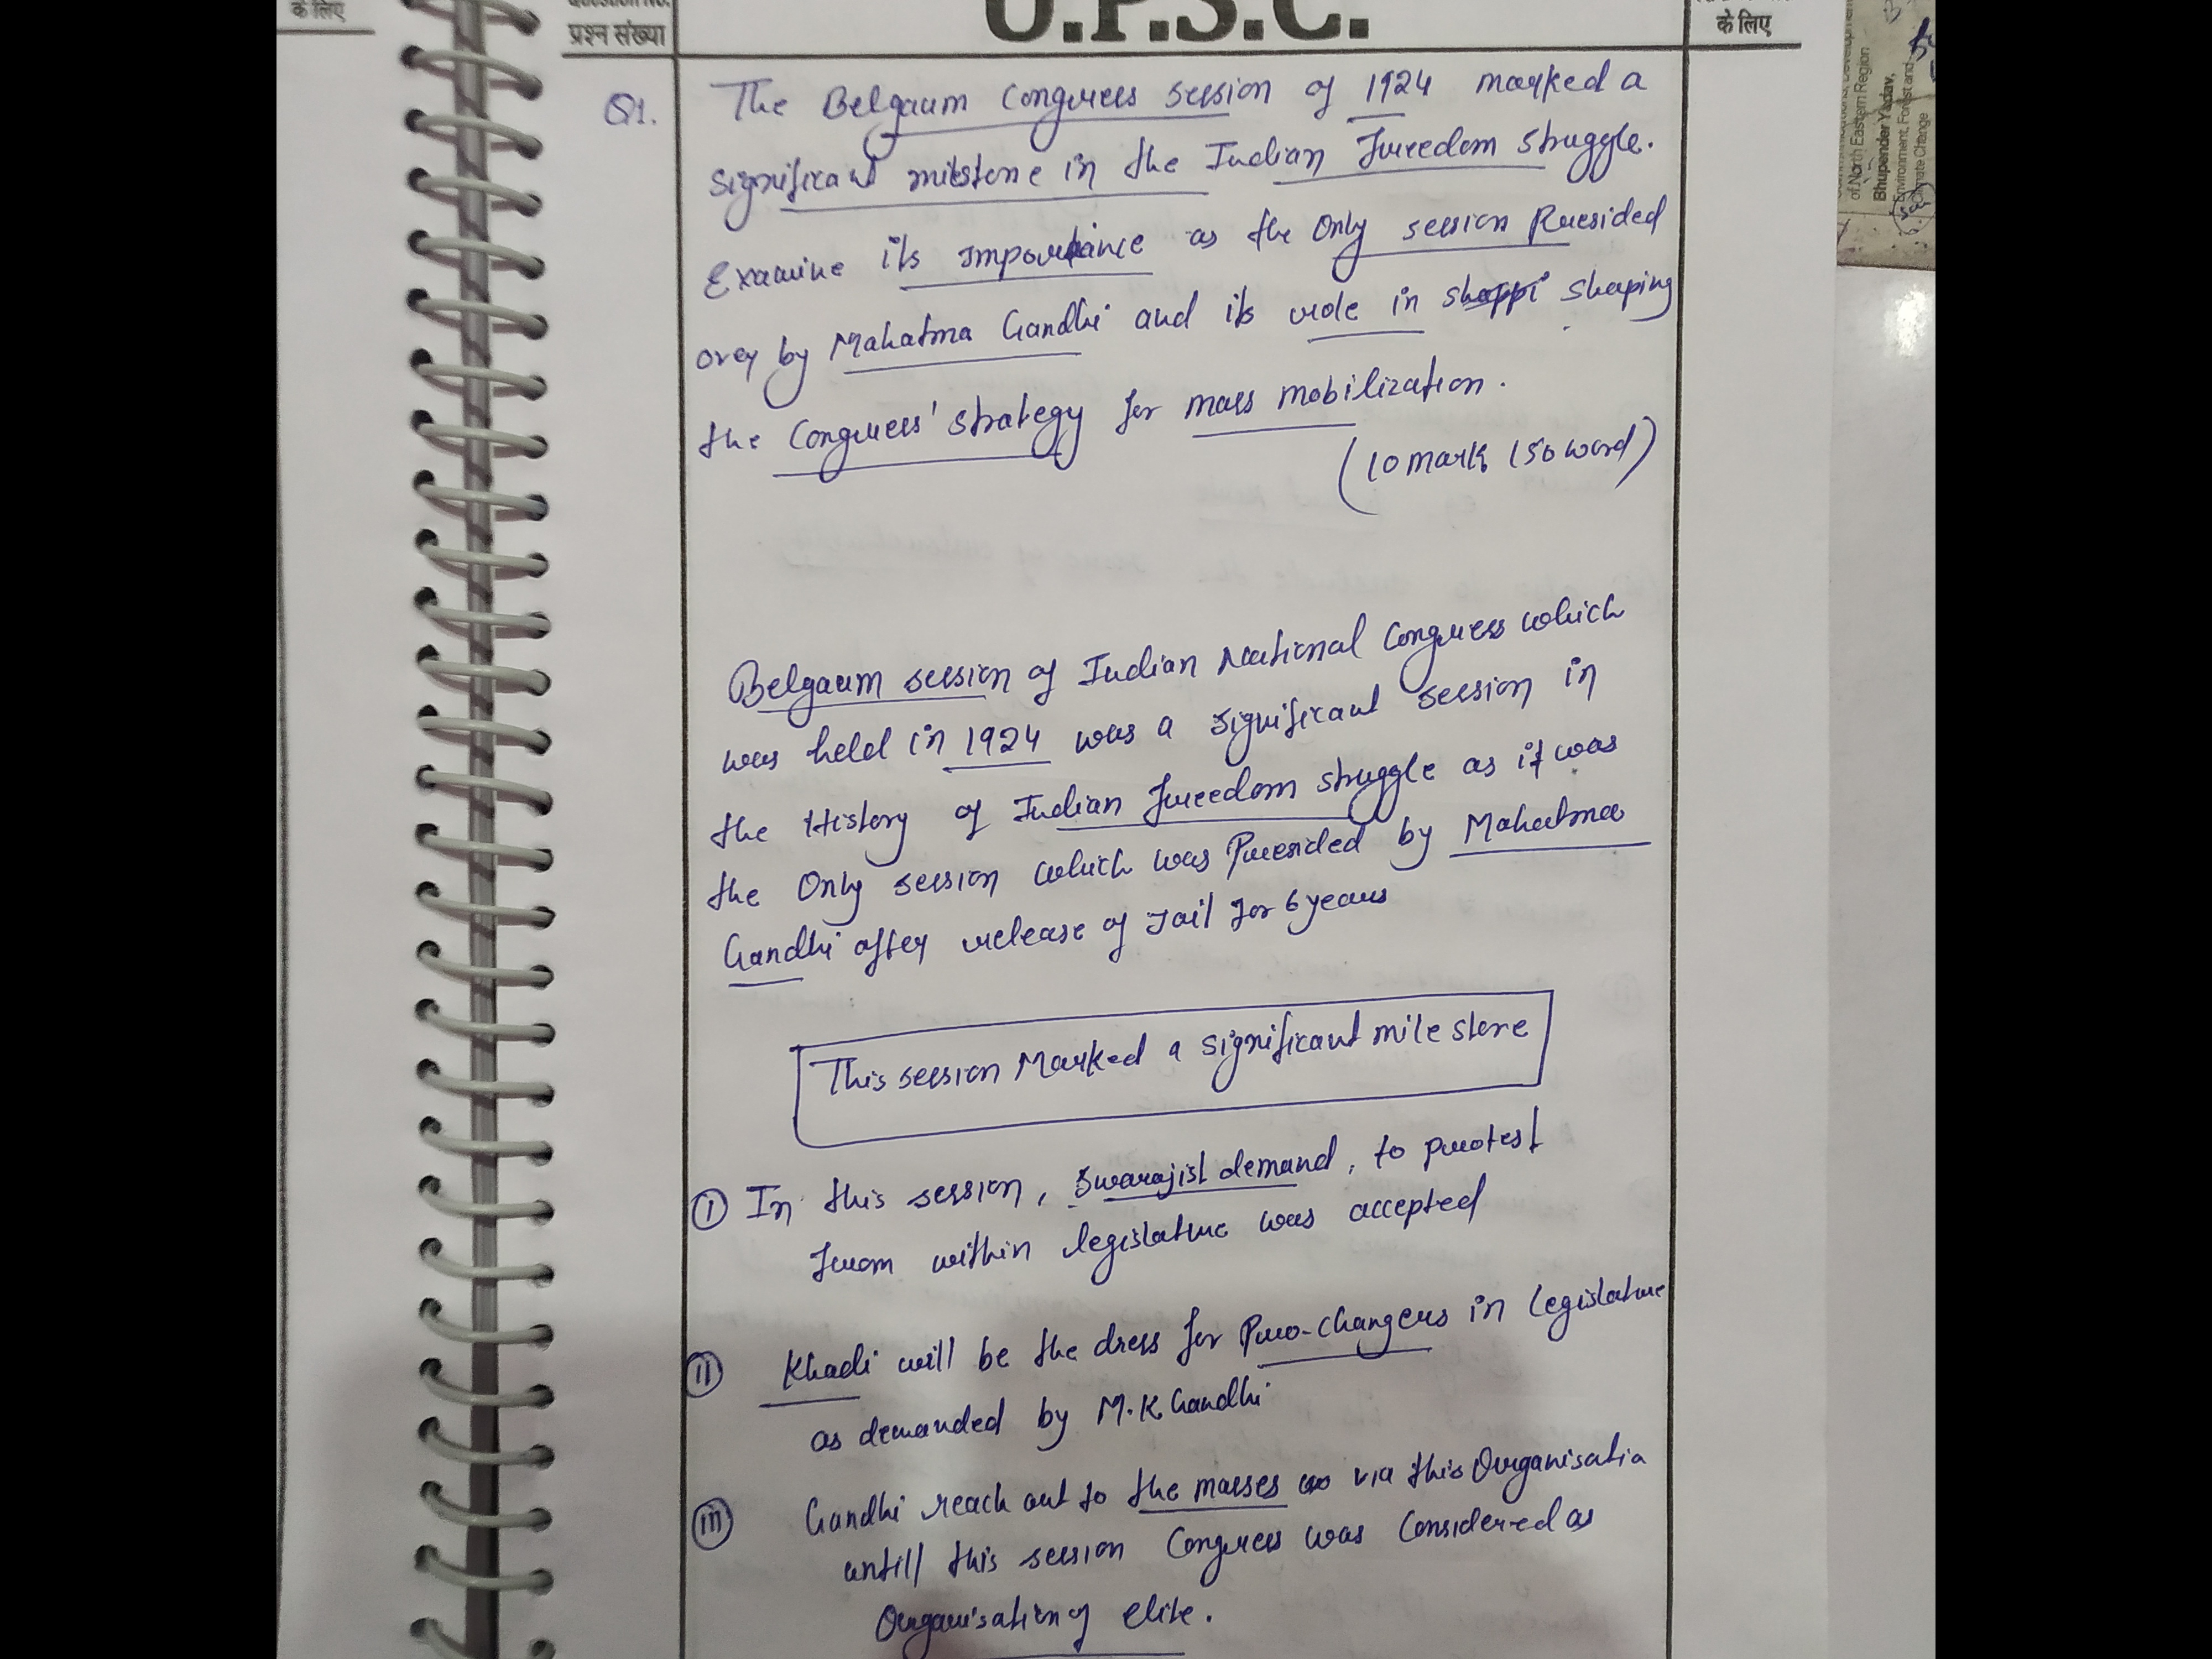 के लिए
प्रश्न संख्या
U.P.S.C.
के लिए
of North Eastern Region
Bhupender Yadav,
Environment, Forest and
Climate Change
Q1. The Belgaum Congress session of 1924 marked a
significant milestone in the Indian freedom struggle.
Examine its importance as the Only session Presided
over by Mahatma Gandhi and its role in shaping
the Congress' strategy for mass mobilization.
(10 mark 150 word)
Belgaum session of Indian National Congress which
was held in 1924 was a significant session in
the History of Indian freedom struggle as it was
the Only session which was Presided by Mahatma
Gandhi after release of Jail for 6 years
This session Marked a significant mile stone
(i) In this session, Swarajist demand, to protest
from within legislature was accepted
(ii) Khadi will be the dress for Pro-changers in legislature
as demanded by M.K. Gandhi
(iii) Gandhi reach out to the masses via this Organisatio
untill this session Congress was Considered as
Organisation of elite.